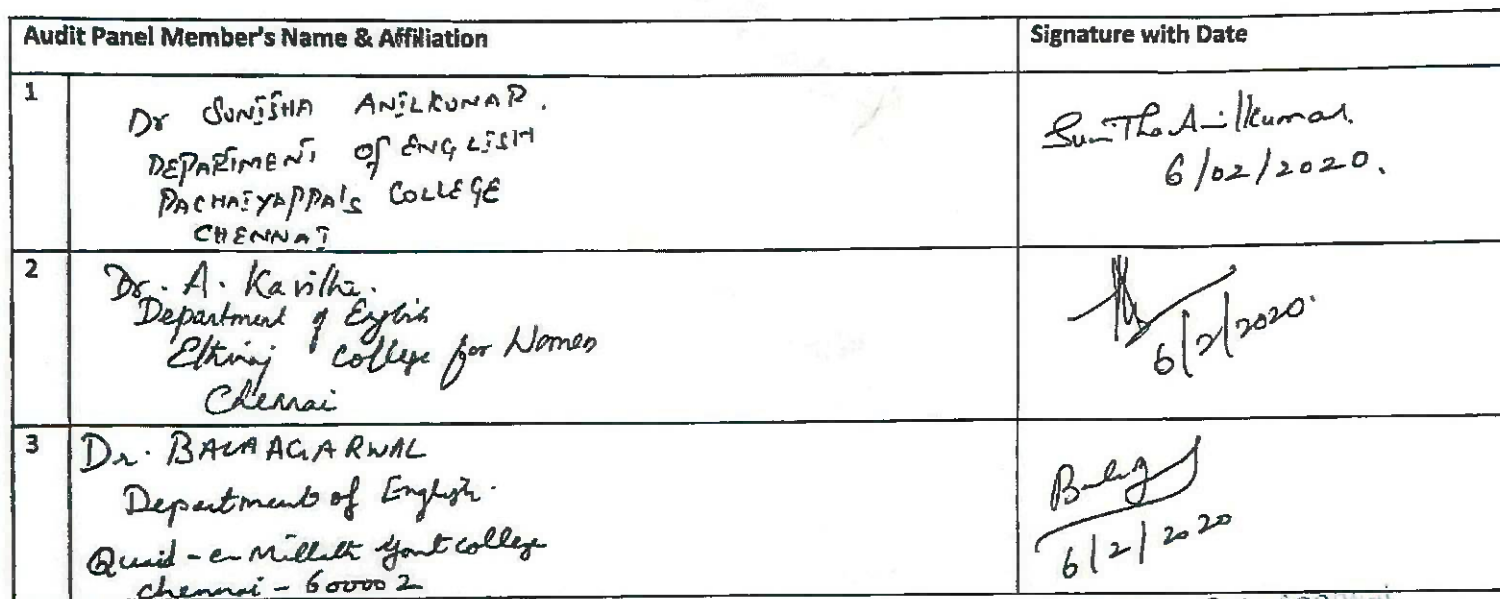 Audit Panel Member's Name & Affiliation
Signature with Date
1
Dr SUNITHA ANILKUMAR.
DEPARTMENT OF ENGLISH
PACHAIYAPPA'S COLLEGE
CHENNAI
SuniTha Anilkumar.
6/02/2020.
2
Dr. A. Kavitha.
Department of English
Ethiraj College for Women
Chennai
6/2/2020.
3
Dr. BALA AGARWAL
Department of English.
Quaid-e-Millath Govt college
chennai - 600002
6/2/2020